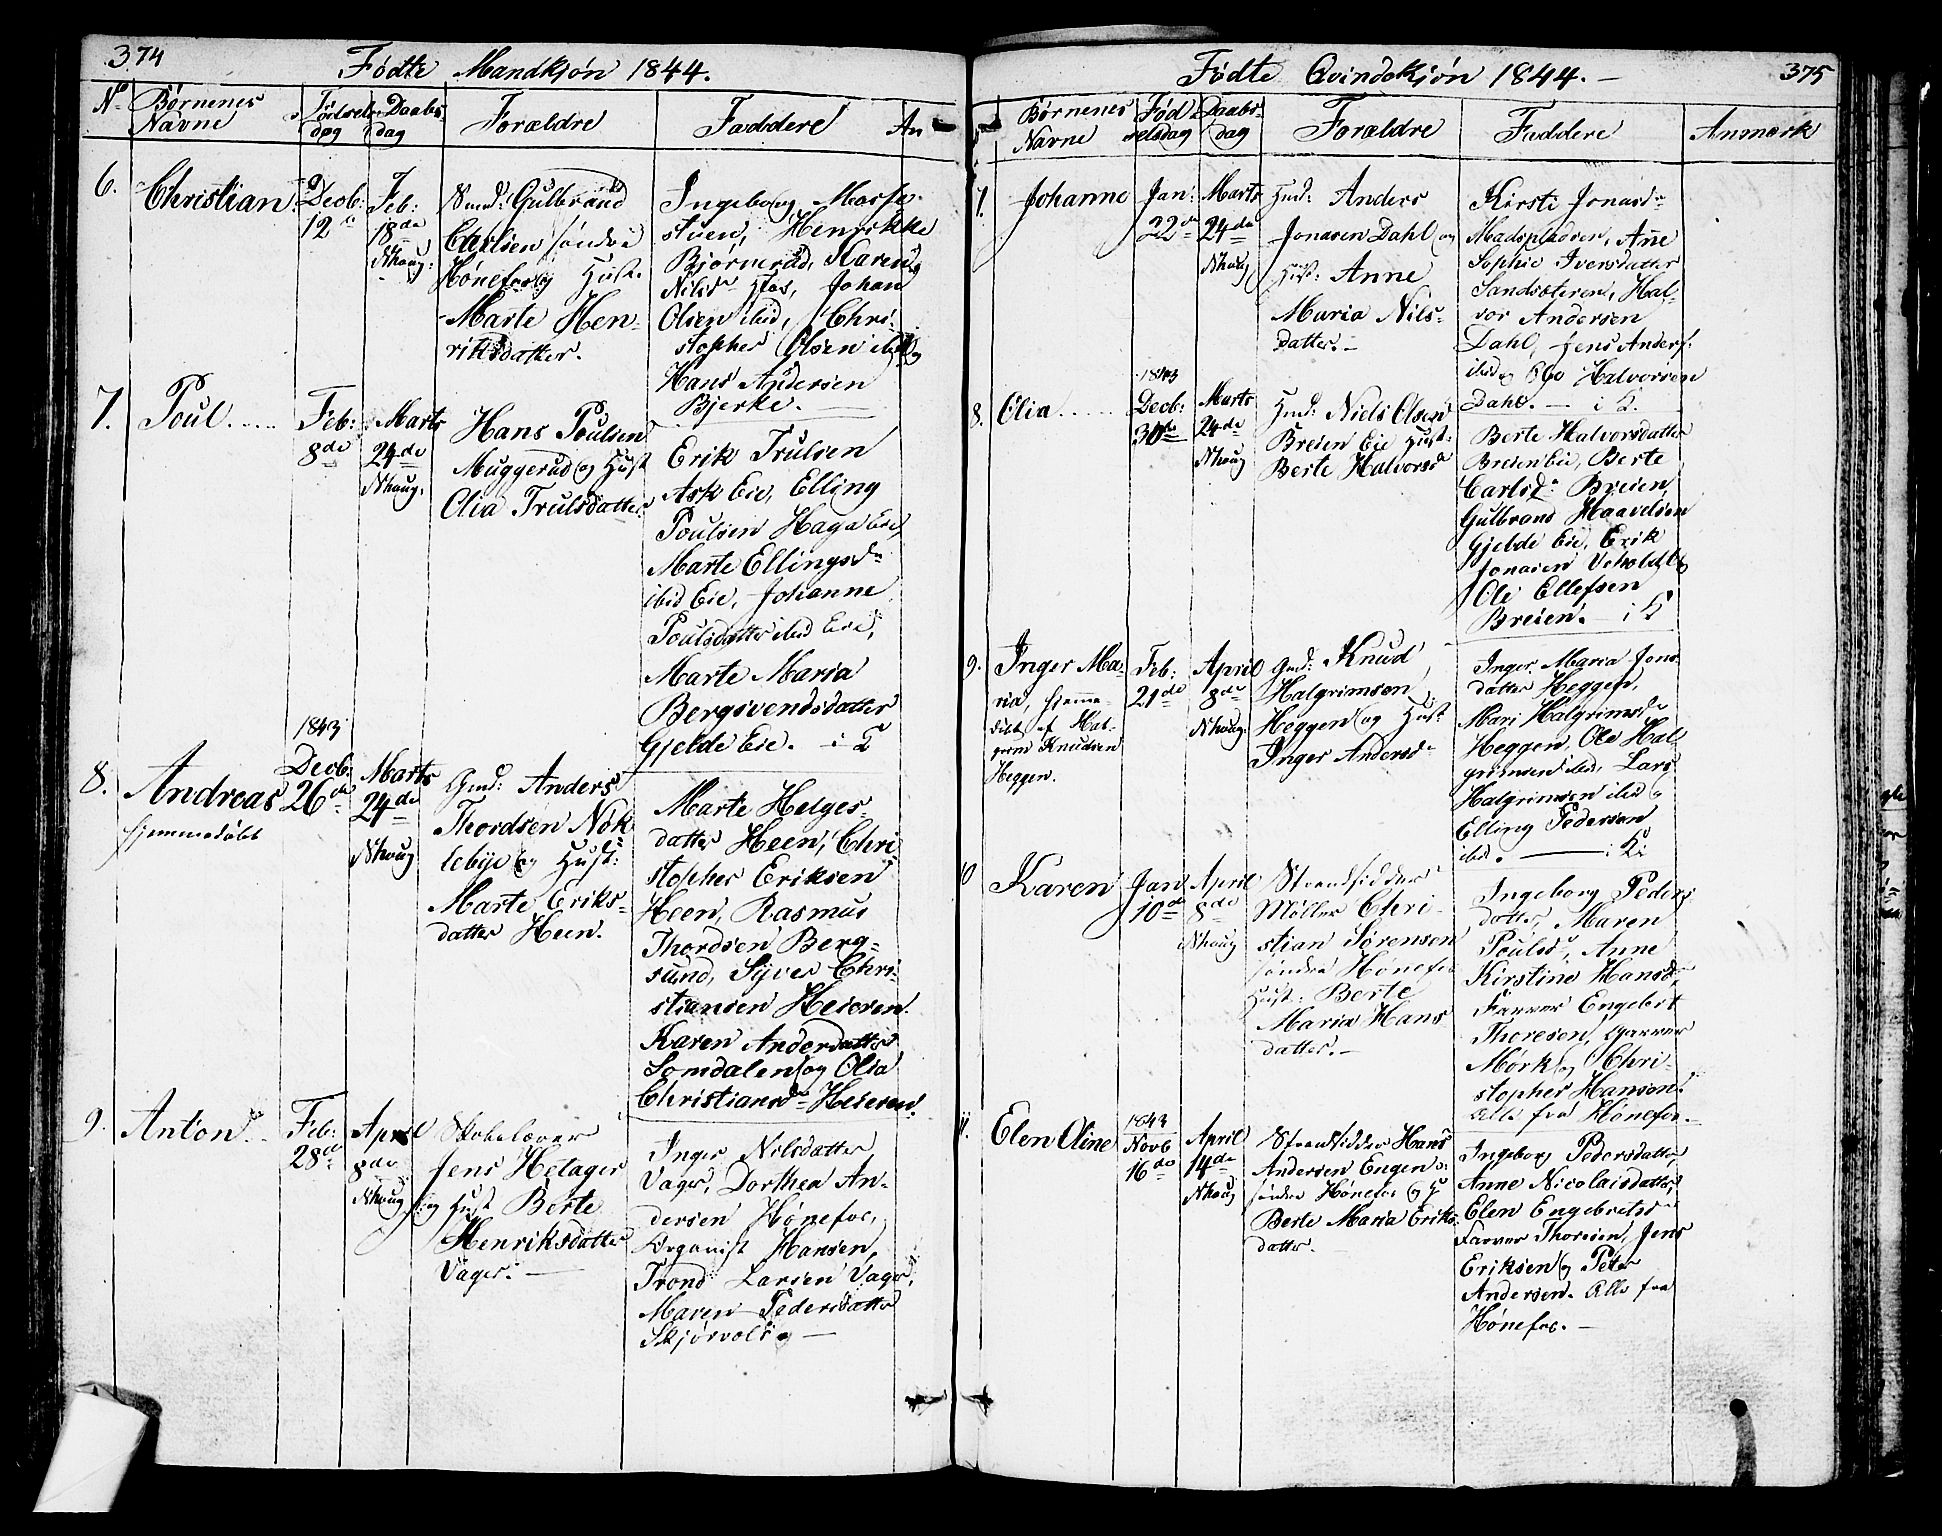 374
Fødte Mandkjøn 1844.
No
Børnenes
Navne
Fødsels
dag
Daabs
dag
Forældre
Faddere
An
6.
Christian.
Decb:
12te
Feb:
18de
Nhoug:
Smed: Gulbrand
søndre
Hønefos og Hust.
Marte Hen-
riksdatter.
Ingeborg
stuen, Henrikke
Bjørnerud, Karen
Nilsdr Hfos, Johan
Olsen ibid, Chri-
stopher Olsen ibid og
Hans Andersen
Bjerke.
7.
Poul.....
Feb:
8de
Marts
24de
Nhoug.
Hans Poulsen
Muggerud og Hust
Olia Trulsdatter
Erik Trulsen
Ask Eie, Elling
Poulsen Haga Eie,
Marte Ellingsdr
ibid Eie, Johanne
Poulsdatter ibid Eie,
Marte Maria
Bergsvendsdatter
Gjelde Eie.
8.
Andreas
hjemmedøbt
1843
Decb:
26de
Marts
24de
Nhoug
Gmd: Anders
Thordsen Nok
lebye og Hust:
Marte Eriks-
datter Heen.
Marte Helges-
datter Heen, Chri
stopher Eriksen
Heen, Rasmus
Thordsen Berg-
sund, Syver Chri-
stiansen Heieren.
Karen Andersdatter
Somdalen og Olia
Christiansdr Heieren.
9.
Anton..
Feb:
28de
April
8de
Nhoug
Skolelærer
Jens Hetager
og Hust Berte
Henriksdatter
Vager.
Inger Nilsdatter
Vager, Dorthea An-
dersen Hønefos,
Organist Hansen,
Trond Larsen Vager,
Maren Pedersdatter
Skjørvold
375
Fødte Qvindekjøn 1844.
Børnenes
Navne
Fød
selsdag
Daabs-
dag
Forældre
Faddere
Anmærk
7.
Johanne
Jan:
22de
Marts
24de
Nhoug
Hmd: Anders
Jonasen Dahl og
Hst: Anne
Maria Nils-
datter.
Kirsti Jonasdr
Madspladsen, Anne
Sophie Iversdatter
Sandsæteren, Hal-
vor Andersen
Dahl, Jens Anders.
ibid og Ole Halvorsen
Dahl.
8.
Olia.....
1843
Decb:
30de
Marts
24de
Nhoug
Hmd: Niels Olsen
Breien Eie Hust:
Berte Halvorsdr
Berte Halvorsdatter
Breien Eie, Berte
Carlsdr Breien
Gulbrand Haavelsen
Gjelde Eie, Erik
Jonasen Veholdt og
Ole Ellefsen
Breien.
9.
Inger Ma-
ria, hjemme-
døbt af Hal-
grim Knudsen
Heggen.
Feb:
21de
April
8de
Nhoug
Gmd: Knud
Halgrimsen
Heggen og Hust
Inger Andersdr
Inger Maria Jons
datter Heggen,
Mari Halgrimsdr
Heggen, Ole Hal
grimsen ibid, Lars
Halgrimsen ibid og
Elling Pedersen
ibid.
10
Karen
Jan
10de
April
8de
Nhoug
Strandsidder
Møller Chri-
stian Sørensen
søndre Hønefos
Hust: Berte
Maria Hans
datter.
Ingeborg Peders
datter, Maren
Poulsdr, Anne
Kirstine Hansdr
Farver Engebret
Thoresen, Garver
Mørk og Chri-
stopher Hansen.
Alle fra Hønefos.
11.
Elen Oline
1843
Novb
16de
April
14de
Nhoug
Strandsidder Hans
Andersen Engen
søndre Hønefos og H
Berte Maria Eriks
datter.
Ingeborg Pedersdatter,
Anne Nicolaisdatter,
Elen Engebretsdr
Farver Thoresen, Jens
Eriksen og Peter
Andersen. Alle fra
Hønefos.